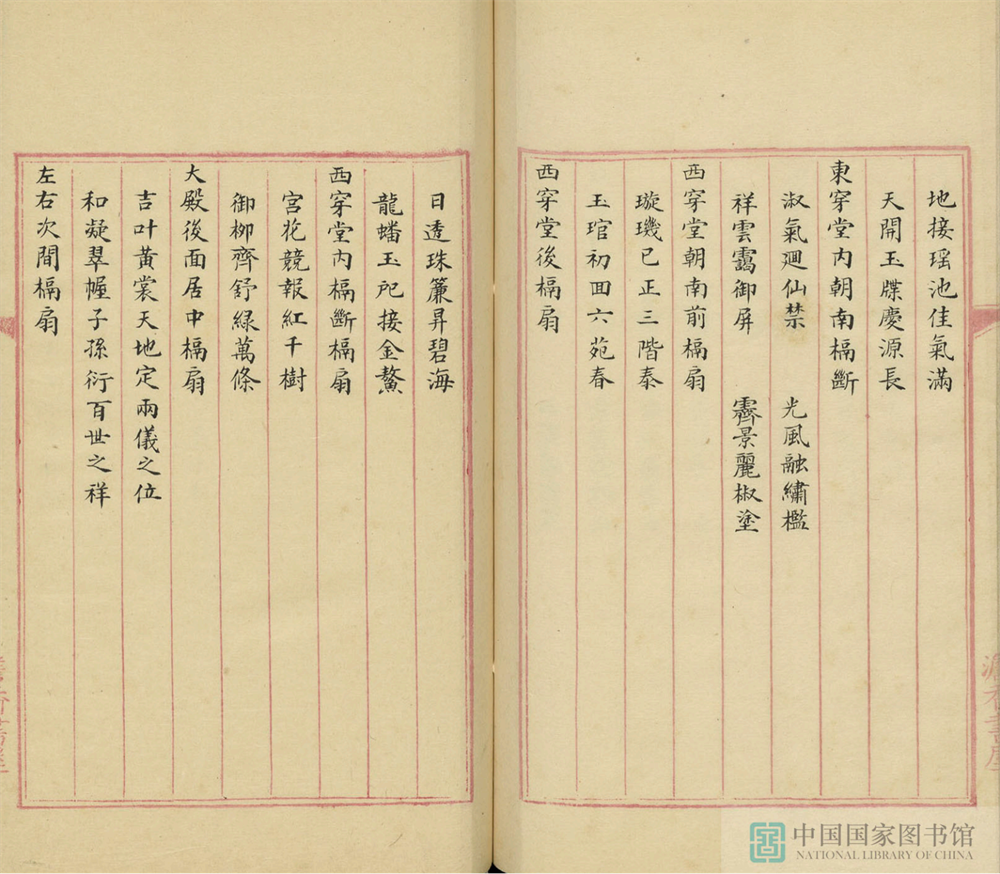 地接瑶池佳氣滿
天開玉牒慶源長
東穿堂内朝南槅斷
淑氣廻仙禁　光風融繡檻
祥雲靄御屏　霽景麗椒塗
西穿堂朝南前槅扇
璇璣已正三階泰
玉琯初回六苑春
西穿堂後槅扇
日透珠簾昇碧海
龍蟠玉戺接金鰲
西穿堂内槅斷槅扇
宮花競報紅千樹
御柳齊舒綠萬條
大殿後面居中槅扇
吉叶黄裳天地定兩儀之位
和凝翠幄子孫衍百世之祥
左右次間槅扇
中国国家图书馆
NATIONAL LIBRARY OF CHINA